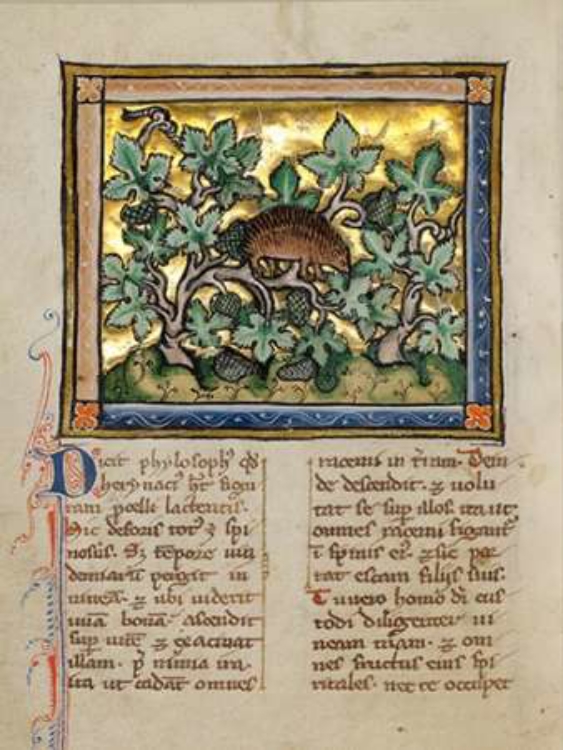 Dicit phylosoph' qđ
herynaci' ht̄ figu
ram porcelli lactentis.
Hic deforis tot' ē spi
nosus. Sꝫ tēpore uin
demiarū pergit in
uineā. ⁊ ubi uiderit
uuā bonā. ascendit
sup uitē ⁊ exacinat
illam.
ita ut cadāt omnes
racemi in t̄ram. Dein
de descendit. ⁊ uolu
tat se sup illos. ita ut
omnes racemi figant̄
ī spinis ei'. ⁊ sic por
tat escam filijs suis.
Tu uero homo dī cus
todi diligenter ui
neam tuam. ⁊ om
nes fructus eius spi
ritales. nec te occupet